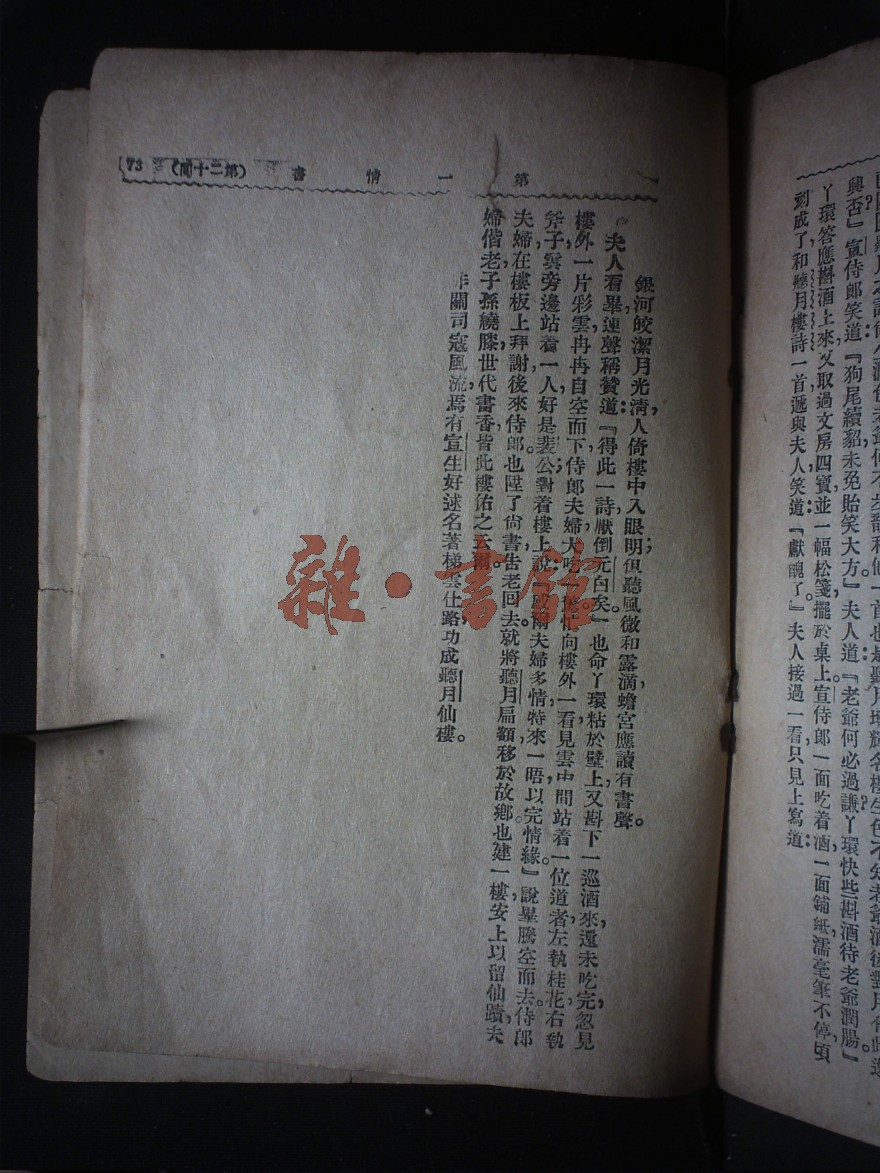 興否』宣侍郎笑道『狗尾續貂未免貽笑大方』夫人道『老爺何必過謙丫環快些斟酒待老爺潤腸』
丫環答應斟酒上來又取過文房四寶並一幅松箋擺於桌上宣侍郎一面吃着酒一面鋪紙濡毫筆不停頃
刻成了和聽月樓詩一首遞與夫人笑道『獻醜了』夫人接過一看只見上寫道：
第一情書 (第二十回) 73
銀河皎潔月光清，人倚樓中入眼明；但聽風微和露滴，蟾宮應讀有書聲。
夫人看畢連聲稱贊道：『得此一詩，壓倒元白矣。』也命丫環粘於壁上，又斟下一巡酒來，還未吃完，忽見
樓外一片彩雲冉冉自空而下，侍郎夫婦大吃一驚，忙向樓外一看，見雲中間站着一位道者，左執桂花，右執
斧子，雲旁邊站着一人，好是裴公，對着樓上說『感爾夫婦多情，特來一晤，以完情緣。』說畢，騰空而去。侍郎
夫婦在樓板上拜謝，後來侍郎也陞了尚書，告老回去，就將聽月扁額移於故鄉，也建一樓安上，以留仙蹟，夫
婦偕老，子孫繞膝，世代書香，皆此樓佑之云爾。
關司寇風流，焉有宣生好逑名著，梯雲仕路，功成聽月仙樓。
雜·書館